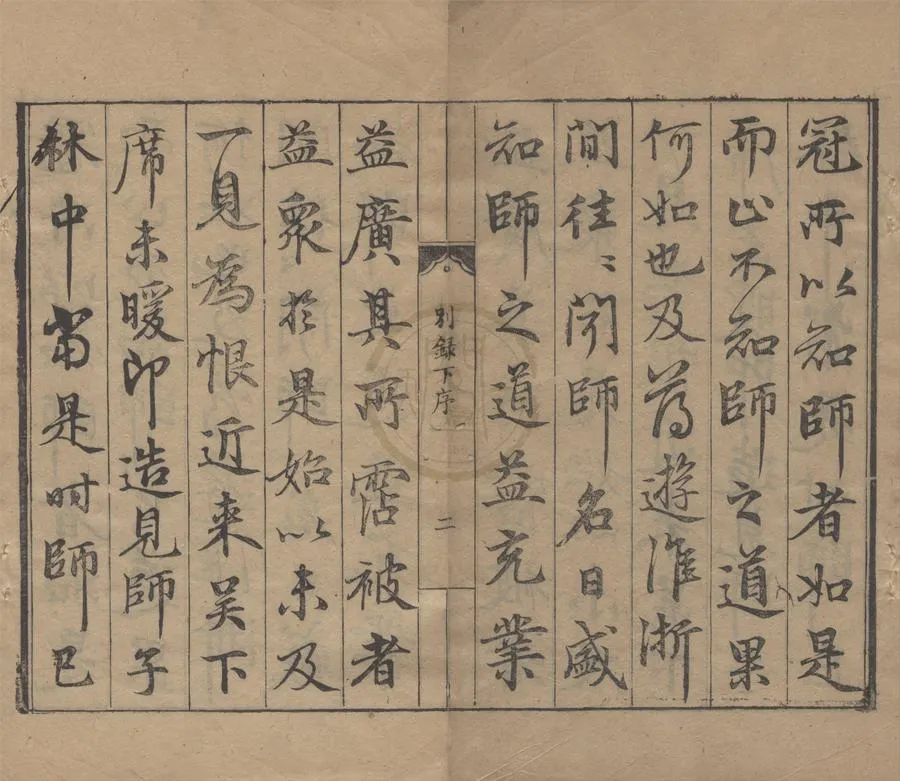 冠所以知師者如是
而止不知師之道果
何如也及薄遊淮浙
間往〻聞師名日盛
知師之道益充業
別錄下序
二
益廣其所霑被者
益衆於是始以未及
一見為恨近来吴下
席未暖即造見師子
林中當是时師已